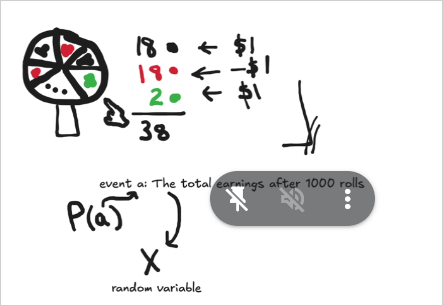 18 ● ← $1
18 ● ← -$1
2 ● ← $1
38
event a: The total earnings after 1000 rolls
P(a)
X
random variable